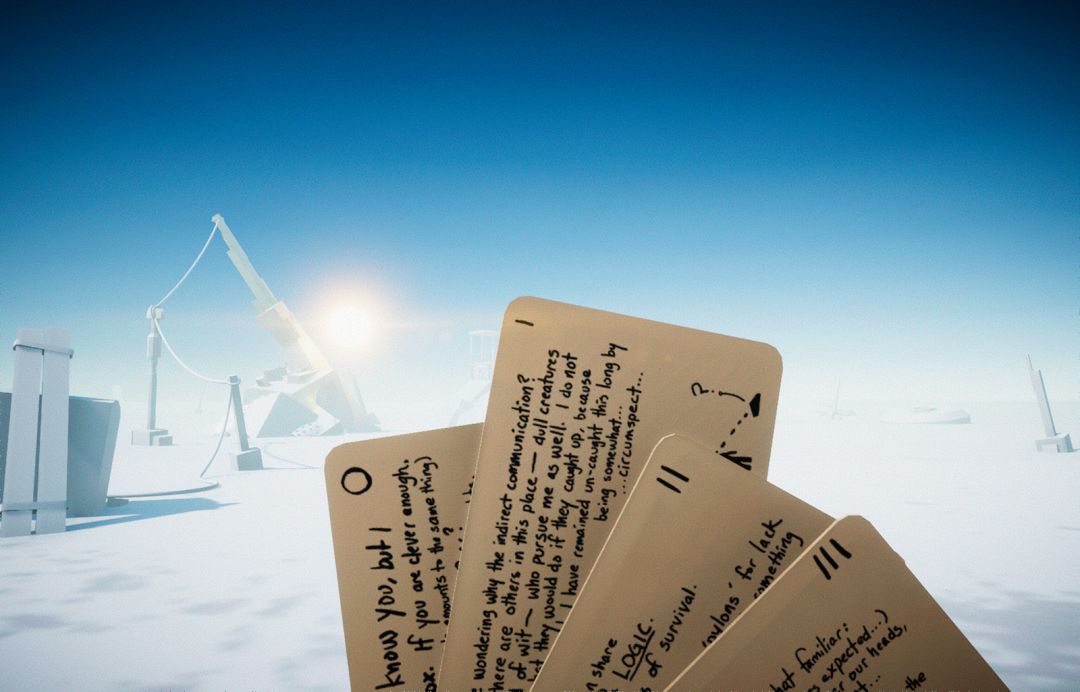 O
know you, but I
If you are clever enough,
amounts to the same thing)
?
I
wondering why the indirect communication?
there are others in this place — dull creatures
of wit — who pursue me as well. I do not
what they would do if they caught up, because
I have remained un-caught this long by
being somewhat...
...circumspect...
?
II
share
LOGIC.
of survival.
for lack
something
III
familiar:
expected...)
our heads,
the